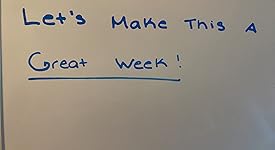 Let's Make This A
Great Week!